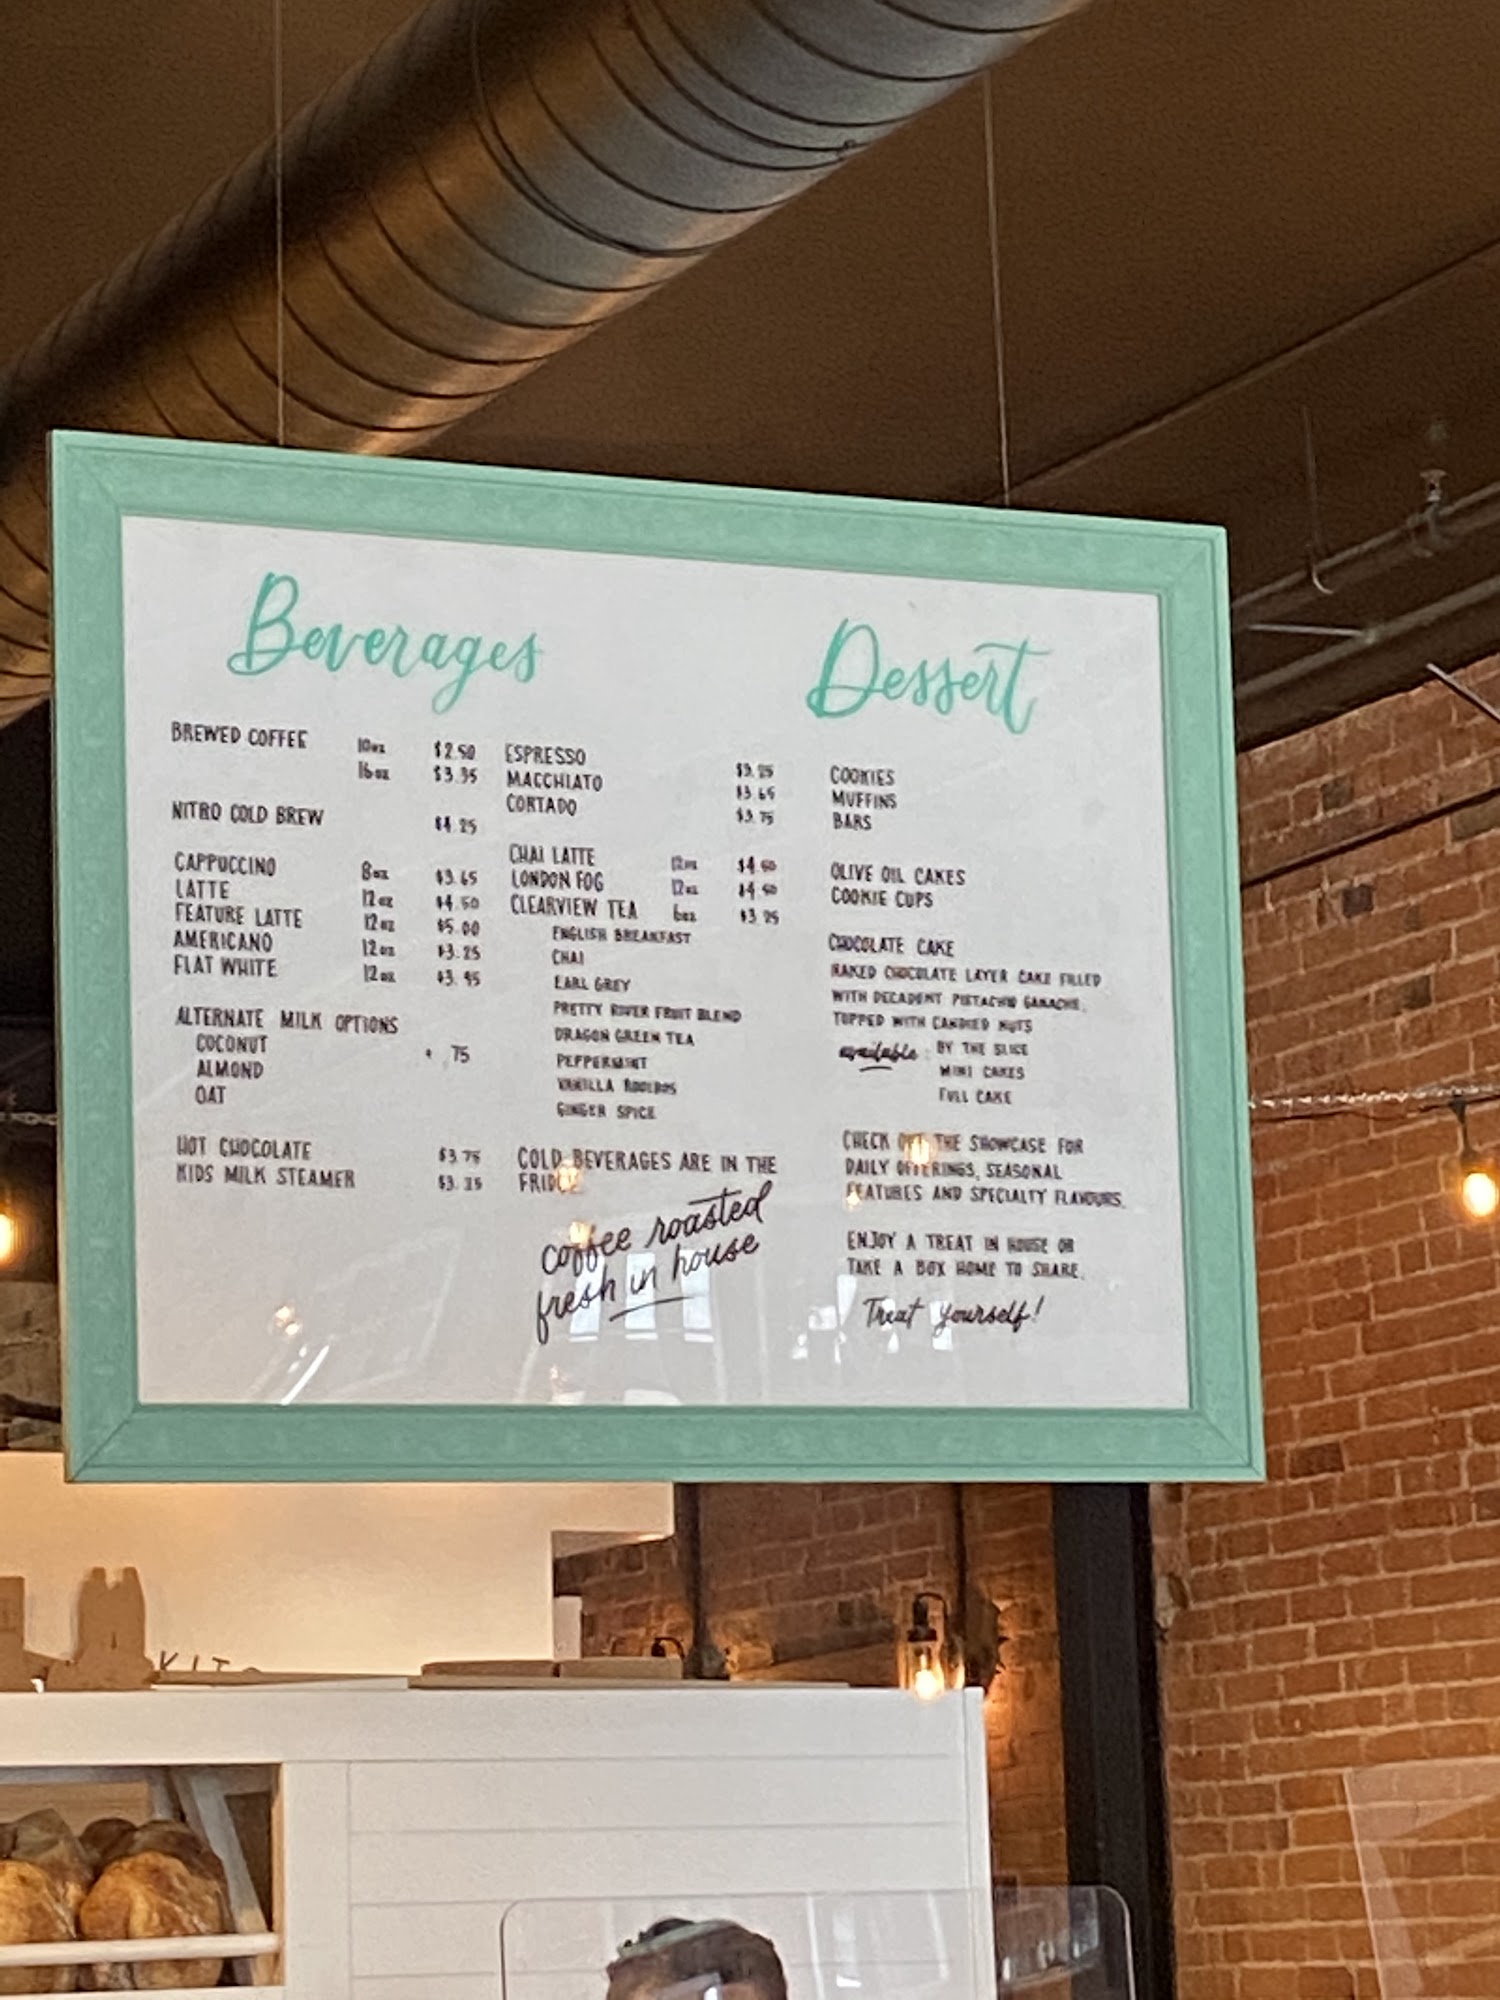 Beverages
BREWED COFFEE 10oz $2.50
16oz $3.35
NITRO COLD BREW $4.25
CAPPUCCINO 8oz $3.65
LATTE 12oz $4.50
FEATURE LATTE 12oz $5.00
AMERICANO 12oz $3.25
FLAT WHITE 12oz $3.95
ALTERNATE MILK OPTIONS
COCONUT
ALMOND + .75
OAT
HOT CHOCOLATE $3.75
KIDS MILK STEAMER $3.25
ESPRESSO $3.25
MACCHIATO $3.65
CORTADO $3.75
CHAI LATTE 12oz $4.50
LONDON FOG 12oz $4.50
CLEARVIEW TEA $3.25
ENGLISH BREAKFAST
CHAI
EARL GREY
PRETTY RIVER FRUIT BLEND
DRAGON GREEN TEA
PEPPERMINT
VANILLA ROOIBOS
GINGER SPICE
COLD BEVERAGES ARE IN THE
FRIDGE
coffee roasted
fresh in house
Dessert
COOKIES
MUFFINS
BARS
OLIVE OIL CAKES
COOKIE CUPS
CHOCOLATE CAKE
NAKED CHOCOLATE LAYER CAKE FILLED
WITH DECADENT PISTACHIO GANACHE,
TOPPED WITH CANDIED NUTS
available: BY THE SLICE
MINI CAKES
FULL CAKE
CHECK OUT THE SHOWCASE FOR
DAILY OFFERINGS, SEASONAL
FEATURES AND SPECIALTY FLAVOURS.
ENJOY A TREAT IN HOUSE OR
TAKE A BOX HOME TO SHARE.
Treat yourself!